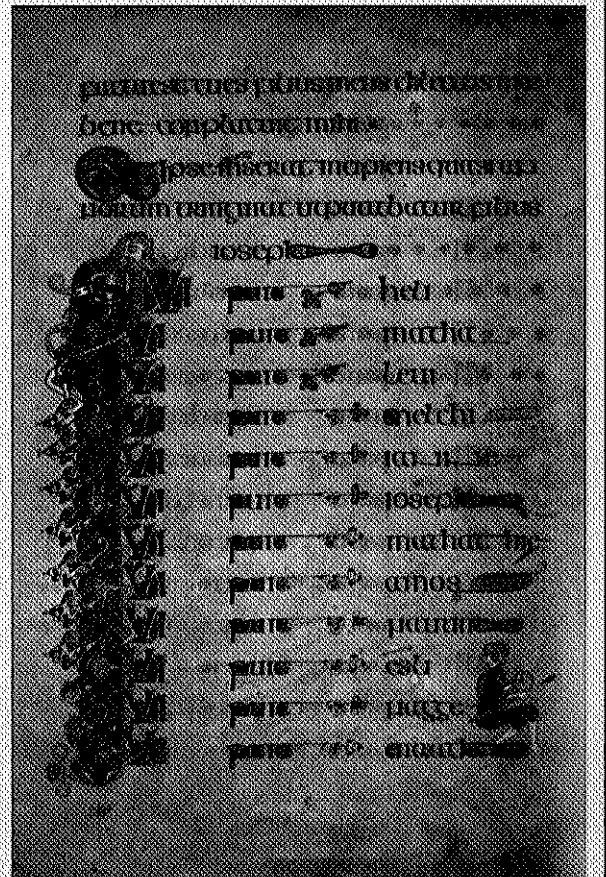 tu es filius meus dilectus in te
bene conplacuit mihi
ipse ihs erat incipiens quasi an
norum triginta ut putabatur filius
ioseph
fuit heli
fuit mathat
fuit leui
fuit melchi
fuit
fuit ioseph
fuit mathathie
fuit amos
fuit nauum
fuit esli
fuit nagge
fuit maath